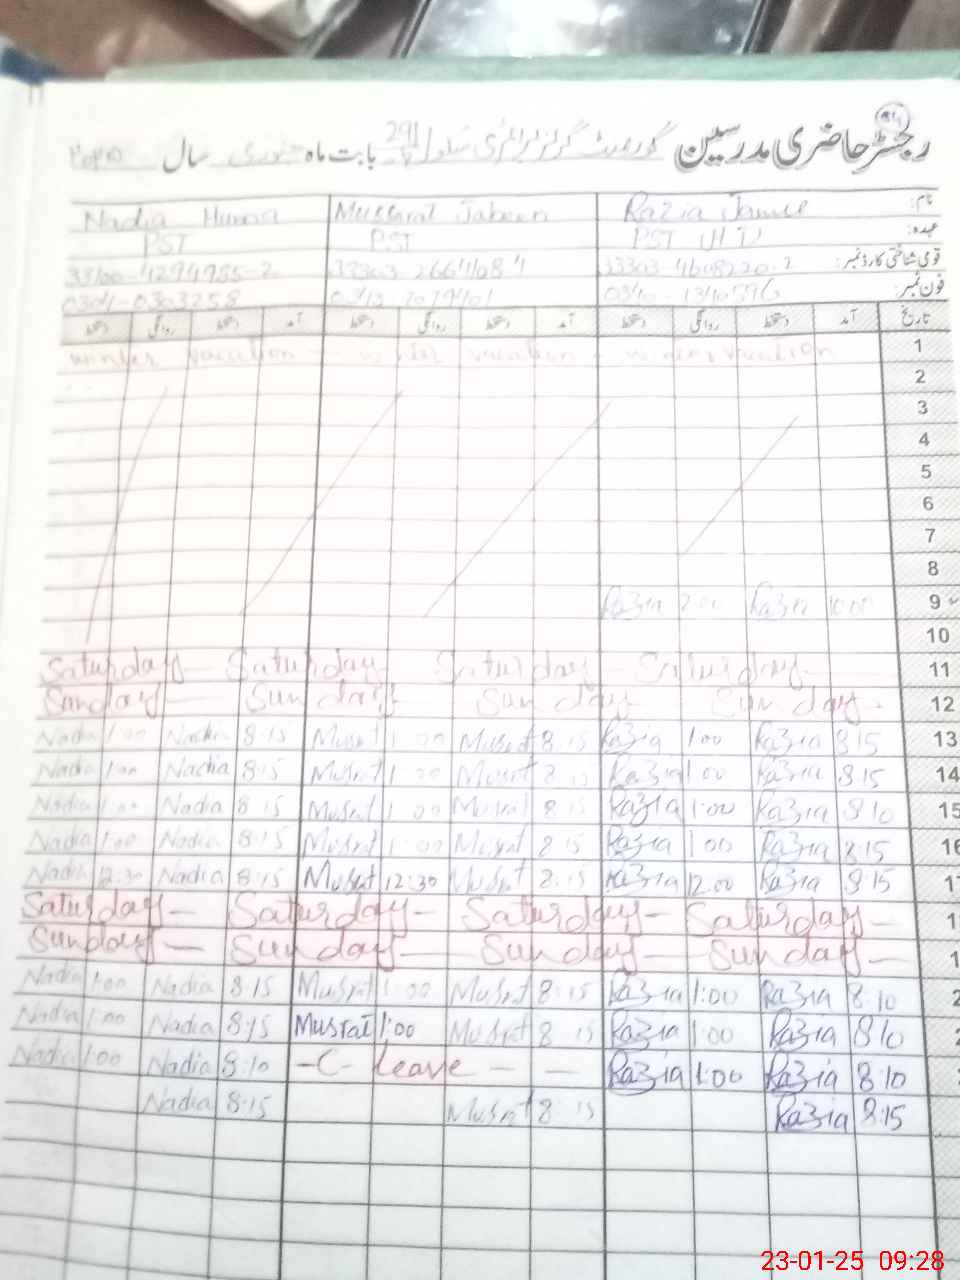 رجسٹر حاضری مدرسین گورنمنٹ گرلز پرائمری سکول 291 بابت ماہ جنوری سال
نام: Razia Mussarat Jabeen Nadia Huma
عہدہ: PST PST PST
قومی شناختی کارڈ نمبر:
فون نمبر:
تاریخ آمد دستخط روانگی دستخط آمد دستخط روانگی دستخط آمد دستخط روانگی دستخط
winter vacation - winter vacation - winter vacation 1
2
3
4
5
6
7
8
Razia 2:00 Razia 10:00 9
10
Saturday - Saturday Saturday - Saturday - 11
Sunday - Sunday - Sunday - Sunday - 12
Nadia 1:00 Nadia 8:15 Musrat 1:00 Musrat 8:15 Razia 1:00 Razia 8:15 13
Nadia 1:00 Nadia 8:15 Musrat 1:00 Musrat 8:15 Razia 1:00 Razia 8:15 14
Nadia 1:00 Nadia 8:15 Musrat 1:00 Musrat 8:15 Razia 1:00 Razia 8:10 15
Nadia 1:00 Nadia 8:15 Musrat 1:00 Musrat 8:15 Razia 1:00 Razia 8:15 16
Nadia 12:30 Nadia 8:15 Musrat 12:30 Musrat 8:15 Razia 12:00 Razia 8:15
Saturday - Saturday - Saturday - Saturday -
Sunday - Sunday - Sunday - Sunday -
Nadia 1:00 Nadia 8:15 Musrat 1:00 Musrat 8:15 Razia 1:00 Razia 8:10
Nadia 1:00 Nadia 8:15 Musrat 1:00 Musrat 8:15 Razia 1:00 Razia 8:10
Nadia 1:00 Nadia 8:10 -C- Leave - - Razia 1:00 Razia 8:10
Nadia 8:15 Musrat 8:15 Razia 8:15
23-01-25 09:28